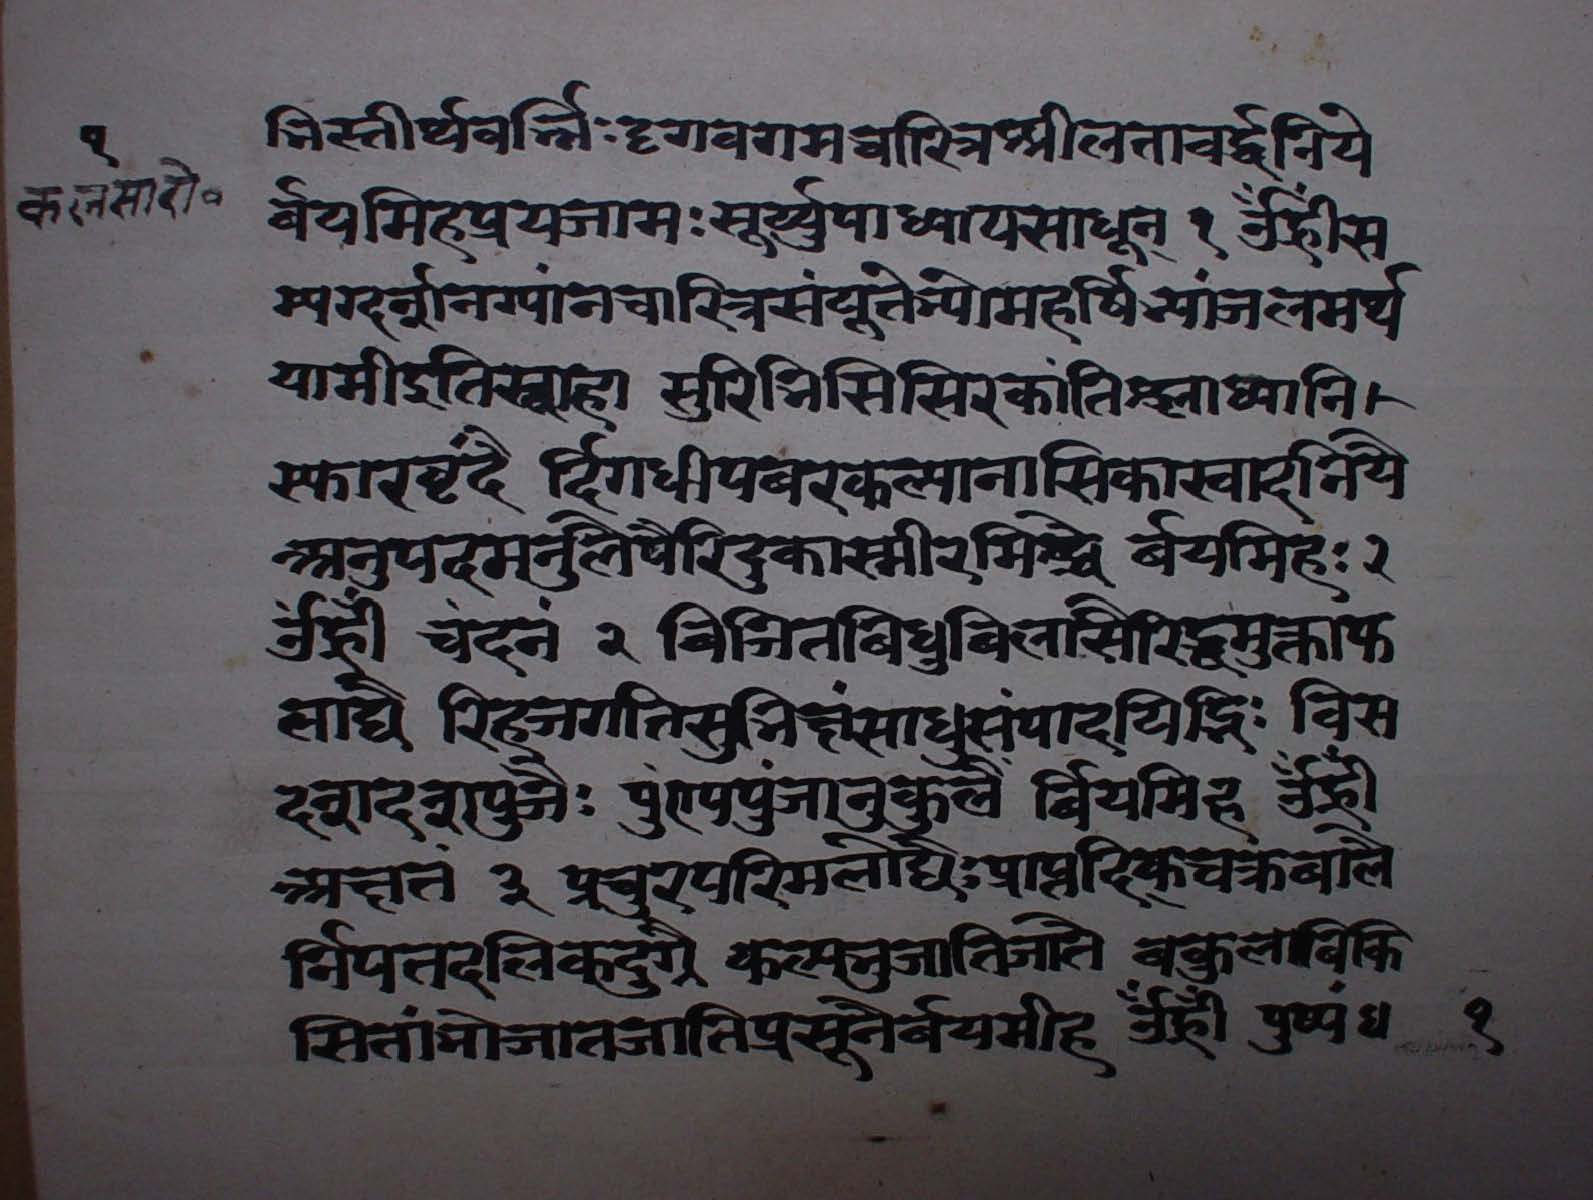 १
कलसादो॰
भिस्तीर्थवर्त्तिः दृगवगमचारित्रश्रीलताचर्द्धनिये
र्बयमिहप्रयजामः सूर्य्युपाध्यायसाधून् १ ॐ ह्रीँ स
म्पग्दर्शनग्पांनचारित्रसंयूतेभ्योमहर्षिभ्यांजलमर्घ
यामीइतिस्वाहा सुरिभिसिसिरकांतिश्लाध्यानि
स्फारवृंदै र्दिगधीपबरकल्पानासिकास्वादनियै
अनुपदमनुलेपैरिदुकास्मीरमिश्रै र्बयमिहः २
ॐ ह्रीँ चंदनं २ बिजितबिधुबिलासैरिद्धमुक्तांफ
लाद्यै रिहजगतिसुभिक्षंसाधुसंपादयिद्भिः विस
दशदशपुंजैः पुंण्यपुंजानुकुलै र्बियमिह ॐ ह्रीँ
अक्षतं ३ प्रचुरपरिमलोघैः प्राप्तदिकचक्रंबालै
र्निपतदलिकदुग्रै कल्पनुजातिजातै बकुलाबिकि
सितांभोजातजातिप्रसूनैर्बयमीह ॐ ह्रीँ पुष्पं ध १